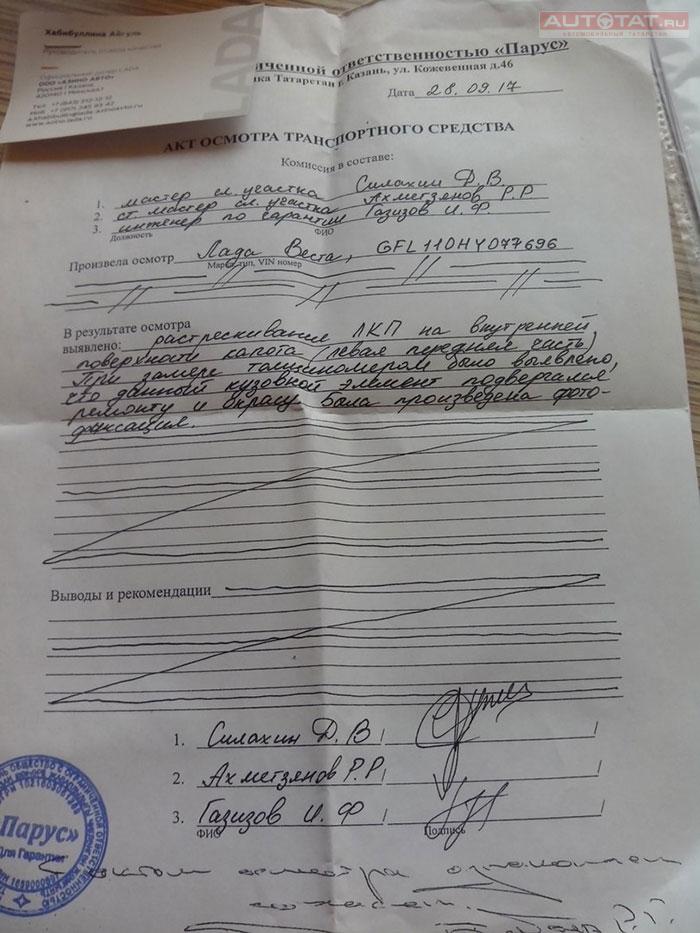 AUTOTAT.RU
АВТОМОБИЛЬНЫЙ ТАТАРСТАН
Хабибуллина Айгуль
Руководитель отдела качества
Официальный дилер LADA
ООО «АЗИНО АВТО»
Россия, г. Казань
LADA
www.azino.lada.ru
иченной ответственностью «Парус»
ика Татарстан г. Казань, ул. Кожевенная д.46
Дата 28.09.17
АКТ ОСМОТРА ТРАНСПОРТНОГО СРЕДСТВА
Комиссия в составе:
1. мастер сл. участка Силахин Д.В
2. ст. мастер сл. участка Ахметзянов Р.Р
3. инженер по гарантии Газизов И.Ф
Должность ФИО
Произвела осмотр Лада Веста, GFL110HY077696
Марка, тип, VIN номер
В результате осмотра
выявлено: растрескивание ЛКП на внутренней
поверхности капота (левая передняя часть)
При замере толщиномером было выявлено,
что данный кузовной элемент подвергался
ремонту и окрасу. Была произведена фото-
фиксация.
Выводы и рекомендации
1. Силахин Д.В /
2. Ахметзянов Р.Р /
3. Газизов И.Ф /
ФИО Подпись
«Парус»
Для Гарантии
с актом осмотра ознакомлен